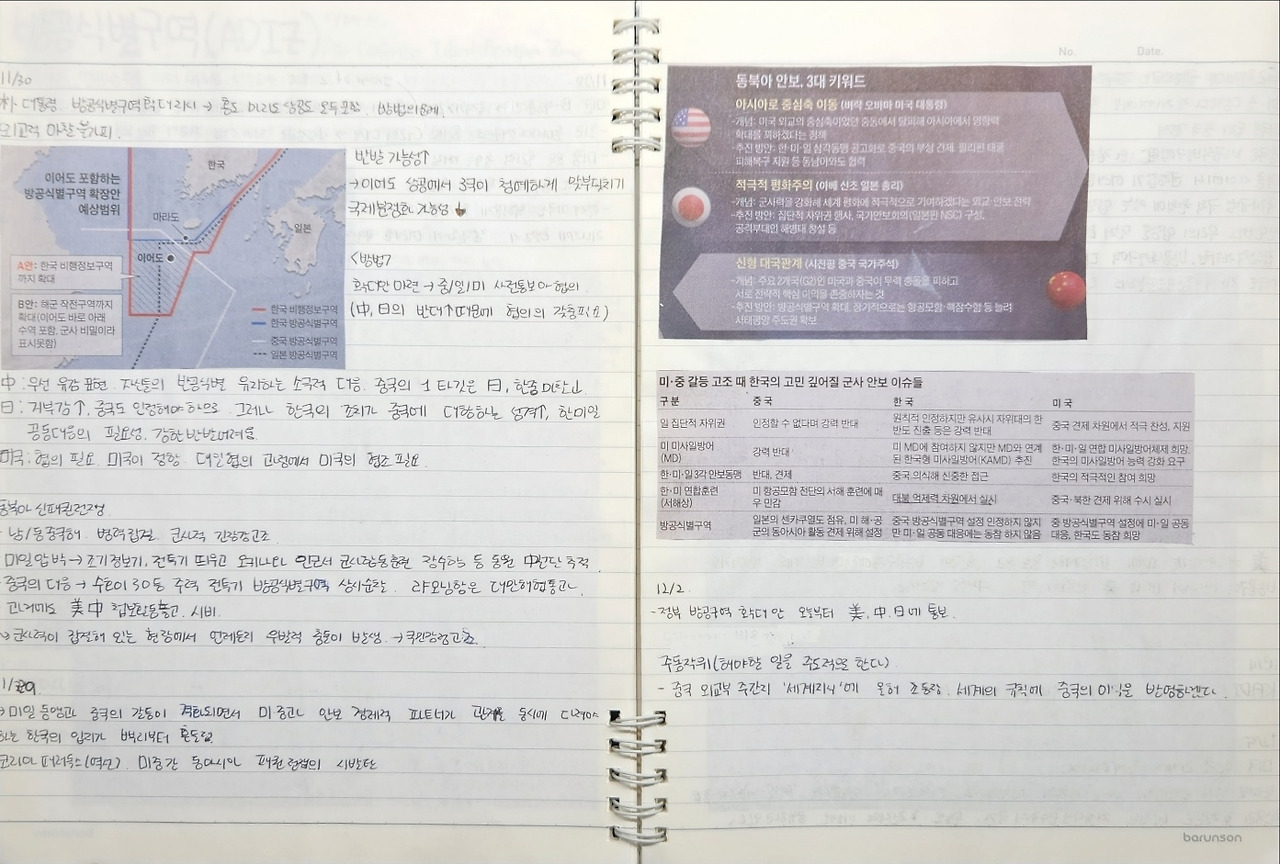 11/30
朴 대통령 방공식별구역 확대지시 → 홍도 마라도 상공도 모두포함. 방법의문제.
외교적 마찰 불가피.
한국
이어도 포함하는
방공식별구역 확장안
예상범위
마라도
이어도
일본
A안: 한국 비행정보구역
까지 확대
B안: 해군 작전구역까지
확대(이어도 바로 아래
수역 포함. 군사 비밀이라
표시못함)
한국 비행정보구역
한국 방공식별구역
중국 방공식별구역
일본 방공식별구역
반발 가능성↑
→이어도 상공에서 3국이 첨예하게 맞부딪치기
국제분쟁화 가능성
<방법>
확대안 마련 → 중/일/미 사전통보 아 협의.
(中, 日의 반대↑때문에 협의의 갈등필요)
中: 우선 유감 표현. 자신들의 방공식별 유리하는 소극적 대응. 중국의 1 타깃은 日, 한중 마찰시
日: 거부감↑, 중국도 인정해야 하므로. 그러나 한국의 조치가 중국에 대항하는 성격↑, 한미일
공동대응의 필요성. 강한반발어려움.
미국: 협의 필요. 미국이 정함. 대일협의 고정에서 미국의 협조 필요.
동북아 신패권전쟁
- 남/동중국해. 병력집결. 군사적 긴장감고조
- 미일압박 → 조기경보기, 전투기 띄우고 오키나와 인근서 군사합동훈련 감수하는 등 동원 中판단 축적
- 중국의 대응 → 수호이 30 등 주력 전투기 방공식별구역 상시순찰. 랴오닝함은 대만해협통과.
- 과거에도 美中 첩보활동놓고. 시비.
→ 군사력이 집결해 있는 현황에서 언제든지 우발적 충돌이 발생. → 국민감정고조.
11/29
→ 미일 동맹과 중국의 갈등이 격화되면서 미중과 안보 경제적 파트너가 관계를 동시에 다져야
하는 한국의 입지가 뿌리부터 흔들림.
코리아 패러독스(역설). 미중간 동아시아 패권 경쟁의 시발탄
No.
Date.
동북아 안보, 3대 키워드
아시아로 중심축 이동 (버락 오바마 미국 대통령)
-개념: 미국 외교의 중심축이었던 중동에서 탈피해 아시아에서 영향력
확대를 꾀하겠다는 정책
-추진 방안: 한·미·일 삼각동맹 공고화로 중국의 부상 견제. 필리핀 태풍
피해복구 지원 등 동남아와도 협력
적극적 평화주의 (아베 신조 일본 총리)
-개념: 군사력을 강화해 세계 평화에 적극적으로 기여하겠다는 외교·안보 전략
-추진 방안: 집단적 자위권 행사, 국가안보회의(일본판 NSC) 구성,
공격부대인 해병대 창설 등
신형 대국관계 (시진핑 중국 국가주석)
-개념: 주요 2개국(G2)인 미국과 중국이 무력 충돌을 피하고
서로 전략적 핵심 이익을 존중하자는 것
-추진 방안: 방공식별구역 확대. 장기적으로는 항공모함·핵잠수함 등 늘려
서태평양 주도권 확보
미·중 갈등 고조 때 한국의 고민 깊어질 군사 안보 이슈들
구분 중국 한국 미국
일 집단적 자위권 인정할 수 없다며 강력 반대 원칙적 인정하지만 유사시 자위대의 한반도 진출 등은 강력 반대 중국 견제 차원에서 적극 찬성, 지원
미 미사일방어(MD) 강력 반대 미 MD에 참여하지 않지만 MD와 연계된 한국형 미사일방어(KAMD) 추진 한·미·일 연합 미사일방어체제 희망. 한국의 미사일방어 능력 강화 요구
한·미·일 3각 안보동맹 반대, 견제 중국 의식해 신중한 접근 한국의 적극적인 참여 희망
한·미 연합훈련(서해상) 미 항공모함 전단의 서해 훈련에 매우 민감 대북 억제력 차원에서 실시 중국·북한 견제 위해 수시 실시
방공식별구역 일본의 센카쿠열도 점유, 미 해·공군의 동아시아 활동 견제 위해 설정 중국 방공식별구역 설정 인정하지 않지만 미·일 공동 대응에는 동참 하지 않음 중 방공식별구역 설정에 미·일 공동 대응, 한국도 동참 희망
12/2.
-정부 방공구역 확대안 오늘부터 美, 中, 日에 통보.
주동작위(해야할 일을 주도적으로 한다)
- 중국 외교부 주간지 '세계지식'에 올해 초등장. 세계의 규칙에 중국의 이익을 반영하겠다.
barunson